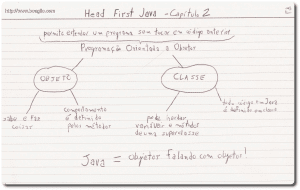 Head First Java - Capítulo 2
permite estender um programa sem tocar em código anterior
Programação Orientada a Objetos
OBJETO
CLASSE
sabe e faz
coisas
comportamento
é definido
pelos métodos
pode herdar
variáveis e métodos
de uma superclasse
todo código em Java
é definido em classe
Java = objetos falando com objetos!